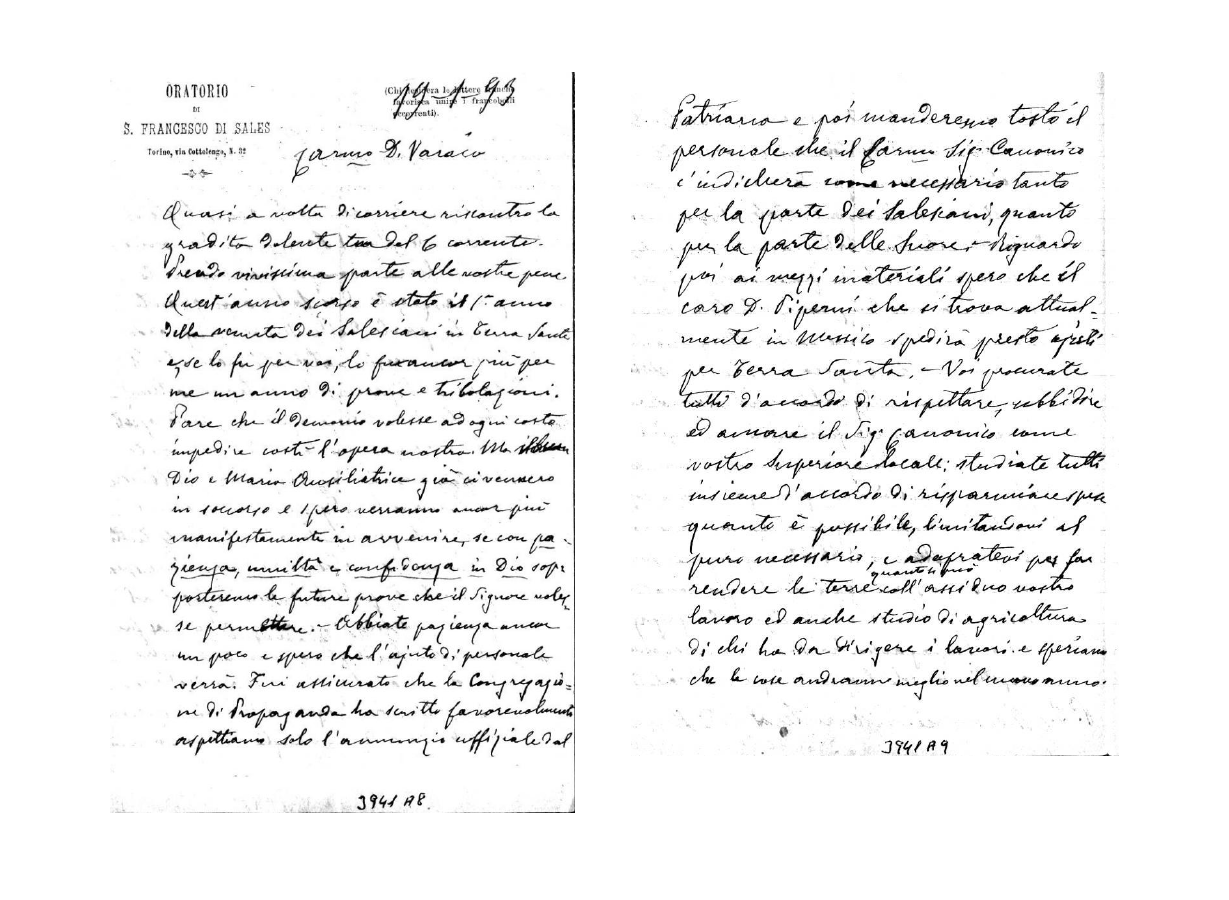 ORATORIO
DI
S. FRANCESCO DI SALES
Torino, via Cottolengo, N. 32
(Chi desidera le lettere franche
favorisca unire i francobolli
occorrenti).
19-1-93
Car.mo D. Varaia
Quasi a volta di corriere riscontro la
gradita dolente tua del 6 corrente.
Prendo vivissima parte alle vostre pene.
Quest'anno scorso è stato il 1° anno
della venuta dei Salesiani in Terra Santa
e se lo fu per voi, lo fu ancor più per
me un anno di prove e tribolazioni.
Pare che il demonio volesse ad ogni costo
impedire costì l'opera nostra. Ma il buon
Dio e Maria Ausiliatrice già ci vennero
in soccorso e spero verranno ancor più
manifestamente in avvenire, se con pa-
zienza, umiltà e confidenza in Dio sop-
porteremo le future prove che il Signore voles-
se permettere. - Abbiate pazienza ancor
un poco e spero che l'ajuto di personale
verrà. Fui assicurato che la Congregazio=
ne di Propaganda ha scritto favorevolmente
aspettiamo solo l'annunzio uffiziale dal
3941 A8
Patriarca e poi manderemo tosto il
personale che il Car.mo Sig. Canonico
c'indicherà come necessario tanto
per la parte dei Salesiani, quanto
per la parte delle Suore. - Riguardo
poi ai mezzi materiali spero che il
caro D. Piperni che si trova attual-
mente in Messico spedirà presto ajuti
per Terra Santa. - Voi procurate
tutti d'accordo di rispettare, ubbidire
ed amare il Sig. Canonico come
vostro Superiore locale; studiate tutti
insieme d'accordo di risparmiare spese
quanto è possibile, limitandovi al
puro necessario, e adopratevi per far
rendere le terre quanto si può coll'assiduo vostro
lavoro ed anche studio di agricoltura
di chi ha da dirigere i lavori e speriamo
che le cose andranno meglio nel nuovo anno.
3941 A9